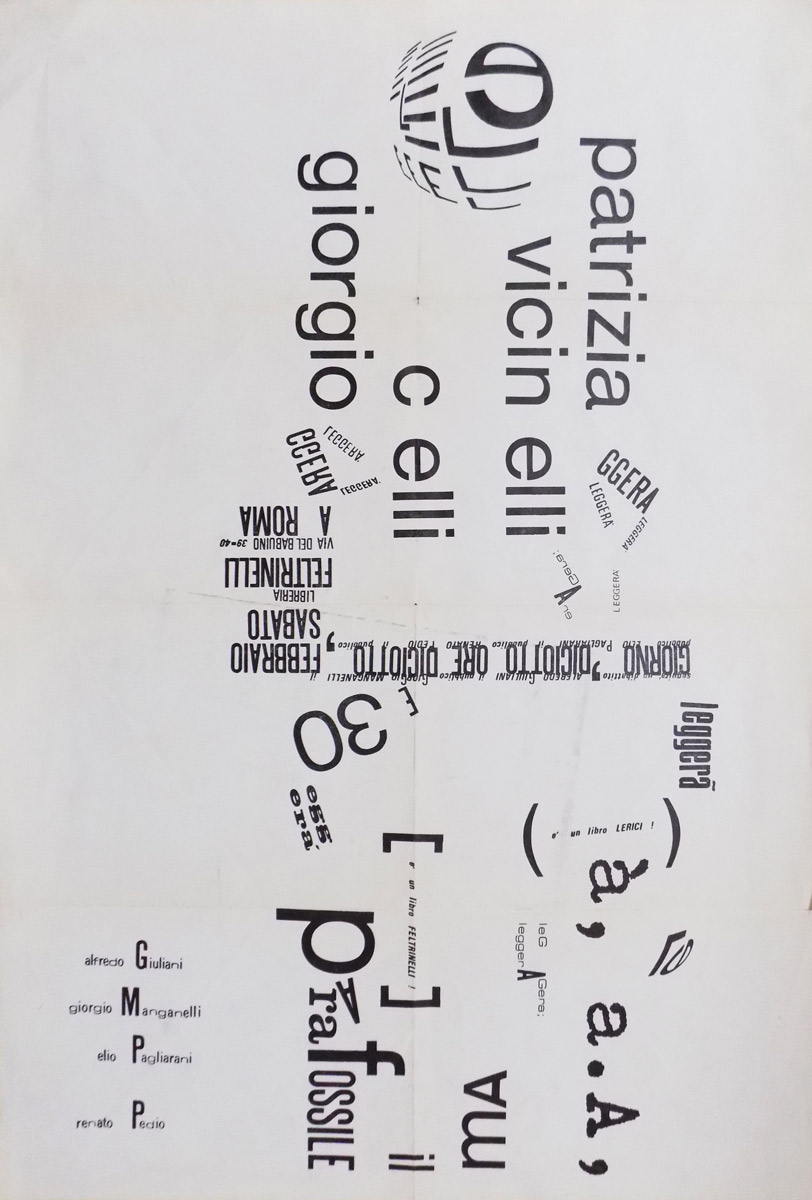 patrizia
vicin elli
giorgio
c elli
GGERA
LEGGERA'
LEGGERA'
CCERA
LEGGERA'
LEGGERA'
LEGGERA'
A ROMA
VIA DEL BABUINO 39=40
FELTRINELLI
LIBRERIA
SABATO
FEBBRAIO
GIORNO ,DICIOTTO ORE DICIOTTO ,
pubblico ELIO PAGLIARANI il pubblico RENATO PEDIO il pubblico
seguira' un dibattito ALFREDO GIULIANI il pubblico GIORGIO MANGANELLI il
30
egg
era'
leggerà
( e' un libro LERICI ! )
à, a.A,
[ e' un libro FELTRINELLI ! ]
leG Gera;
leggerA
pArafOSSILE
il
alfredo Giuliani
giorgio Manganelli
elio Pagliarani
renato Pedio